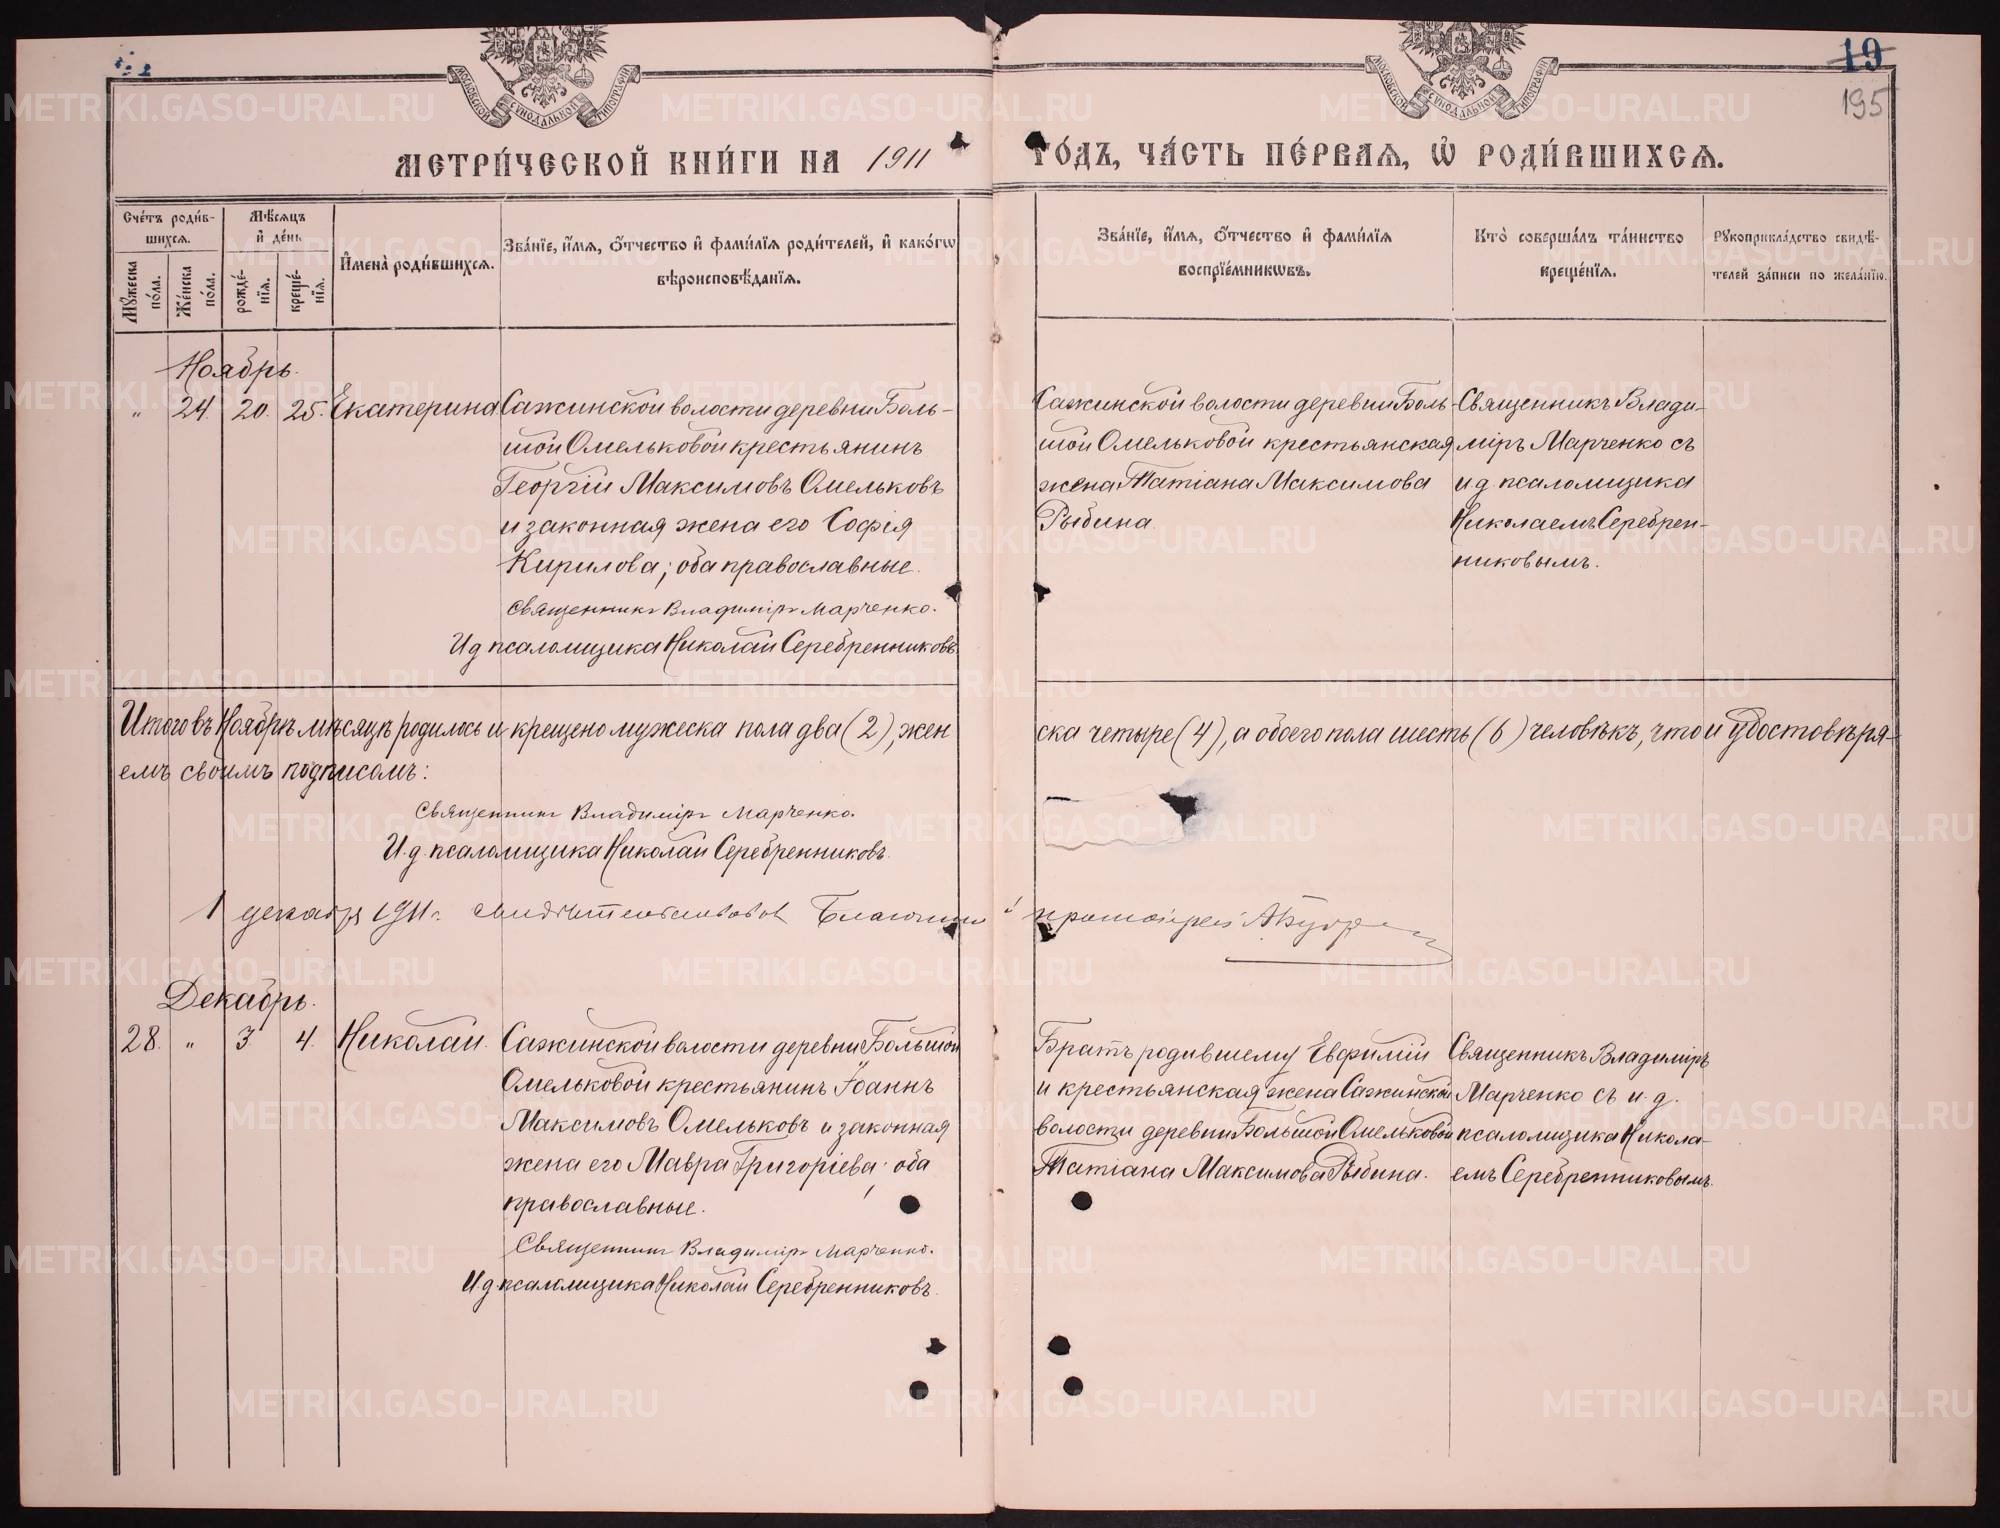 19
195
МОСКОВСКОЙ СѴНОДАЛЬНОЙ ТИПОГРАФІИ
МОСКОВСКОЙ СѴНОДАЛЬНОЙ ТИПОГРАФІИ
МЕТРИ́ЧЕСКОЙ КНИ́ГИ НА 1911 ГО́ДЪ, ЧА́СТЬ ПЕ́РВАѦ, Ѡ҆ РОДИ́ВШИХСѦ.
Сче́тъ роди́в-
шихсѧ.
Мꙋ́жеска по́ла.
Же́нска по́ла.
Мѣ́сѧцъ
и҆ де́нь
рожде́-
нїѧ.
креще́-
нїѧ.
И҆мена̀ роди́вшихсѧ.
Зва́нїе, и҆́мѧ, ѻ҆́тчество и҆ фами́лїѧ роди́телей, и҆ како́гѡ
вѣроисповѣ́данїѧ.
Зва́нїе, и҆́мѧ, ѻ҆́тчество и҆ фами́лїѧ
воспрїе́мникѡвъ.
Кто̀ соверша́лъ та́инство
креще́нїѧ.
Рꙋкоприкла́дство свидѣ́-
телей за́писи по жела́нїю.
Ноябрь.
„ 24. 20. 25. Екатерина
Сажинской волости деревни Боль-
шой Омельковой крестьянинъ
Георгій Максимовъ Омельковъ
и законная жена его Софія
Кирилова; оба православные.
Священникъ Владиміръ Марченко.
И д псаломщика Николай Серебренниковъ.
Сажинской волости деревни Боль-
шой Омельковой крестьянская
жена Татіана Максимова
Рыбина.
Священникъ Влади-
міръ Марченко съ
и д. псаломщика
Николаемъ Серебрен-
никовымъ.
Итого въ Ноябрѣ мѣсяцѣ родилось и крещено мужеска пола два (2), жен
ска четыре (4), а обоего пола шесть (6) человѣкъ, что и удостовѣря-
емъ своимъ подписомъ:
Священникъ Владиміръ Марченко.
И. д. псаломщика Николай Серебренниковъ.
1 декабря 1911 г. свидѣтельствовалъ Благочинный протоіерей
Декабрь.
28. „ 3 4. Николай.
Сажинской волости деревни Большой
Омельковой крестьянинъ Іоаннъ
Максимовъ Омельковъ и законная
жена его Мавра Григоріева; оба
православные.
Священникъ Владиміръ Марченко.
И. д псаломщика Николай Серебренниковъ.
Братъ родившему Евфимій
и крестьянская жена Сажинской
волости деревни Большой Омельковой
Татіана Максимова Рыбина.
Священникъ Владиміръ
Марченко съ и. д.
псаломщика Никола-
емъ Серебренниковымъ.
METRIKI.GASO-URAL.RU